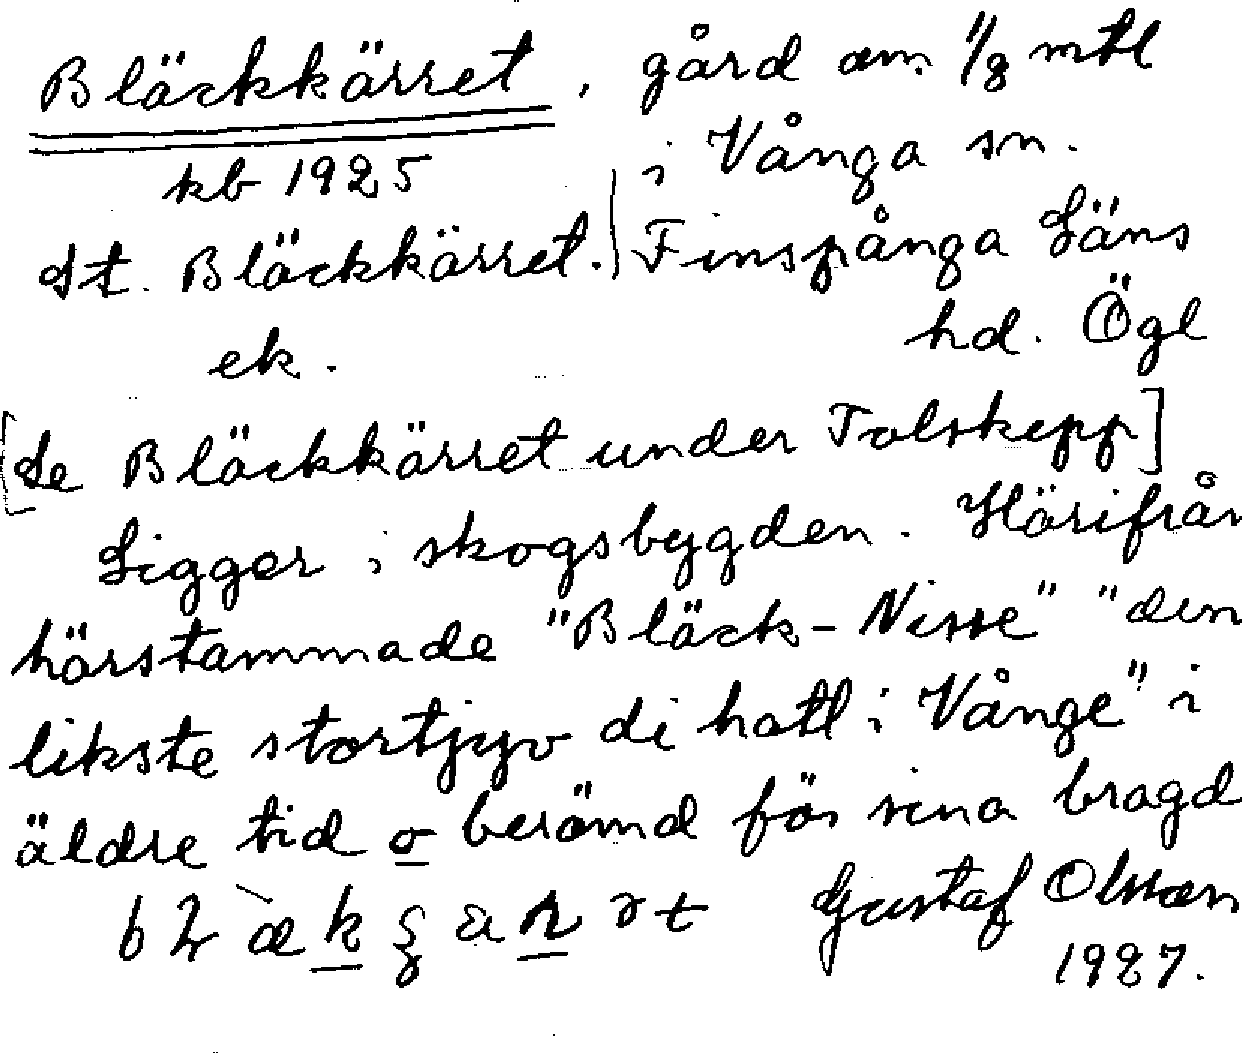 Bläckkärret, gård om 1/8 mtl
kb 1925
i Vånga sn.
St. Bläckkärret. Finspånga Läns
ek. hd. Ögl
[Se Bläckkärret under Tolskepp]
Ligger i skogsbygden. Härifrån
härstammade "Bläck-Nisse" "den
likste stortjyv di hatt i Vånge" i
äldre tid o berömd för sina bragd
Gustaf Olsson
1927.